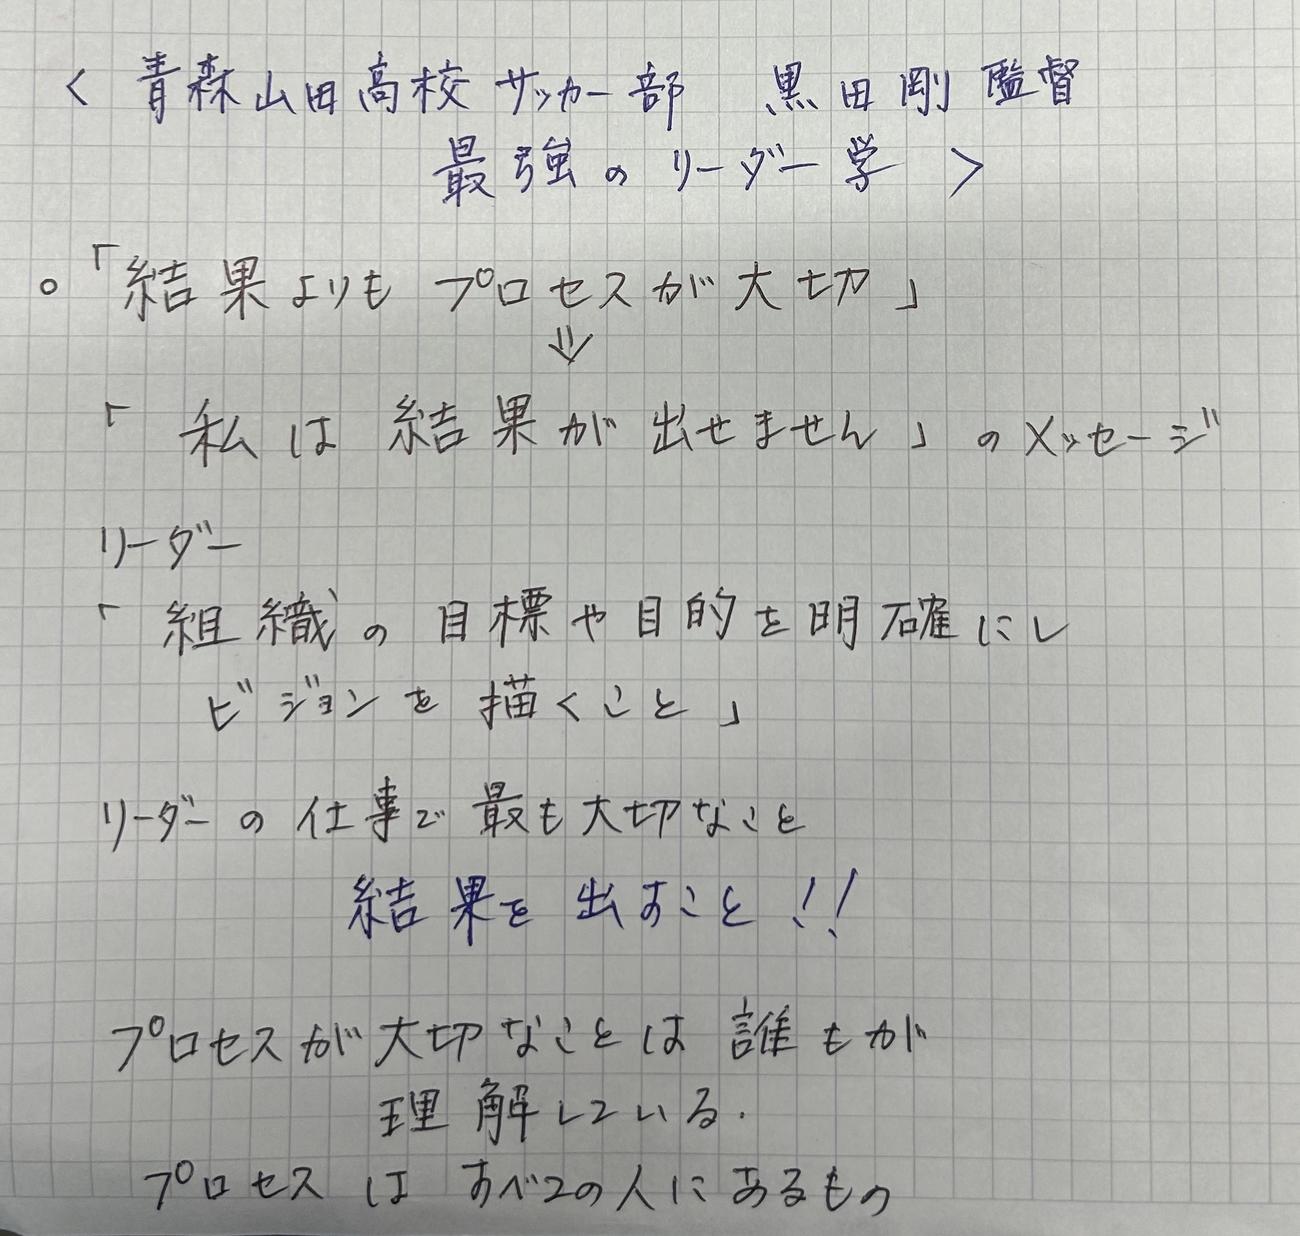 < 青森山田高校サッカー部 黒田剛監督
最強のリーダー学 >
○「結果よりもプロセスが大切」
⇓
「私は結果が出せません」のメッセージ
リーダー
「組織の目標や目的を明確にし
ビジョンを描くこと」
リーダーの仕事で最も大切なこと
結果を出すこと!!
プロセスが大切なことは誰もが
理解している.
プロセスはすべての人にあるもの